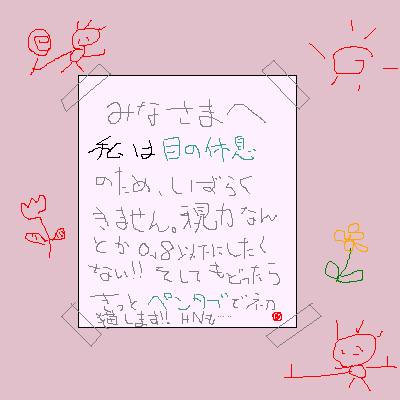 みなさまへ
私は目の休息
のため、しばらく
きません。視力なん
とか0,8以下にしたく
ない!! そしてもどったら
きっとペンタブで初
描します!! HNも……